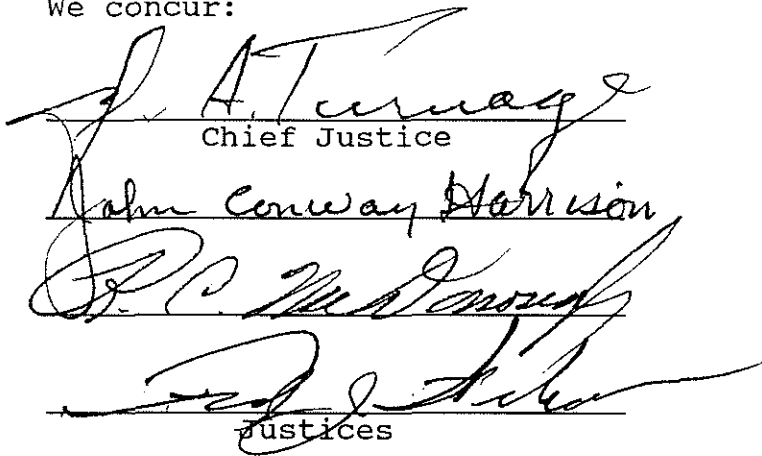 We concur:
J. A. Turnage
Chief Justice
John Conway Harrison
R. C. McDonough
Fred J. Weber
Justices